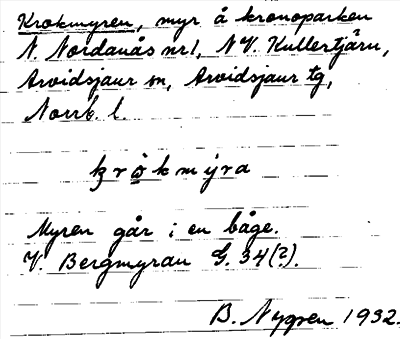 Krokmyren, myr å kronoparken
N. Nordanås nr 1, NV. Kullertjärn,
Arvidsjaur sn, Arvidsjaur tg,
Norrb. l.
kròkmýra
Myren går i en båge.
V. Bergmyran G. 34(?).
B. Nygren 1932.